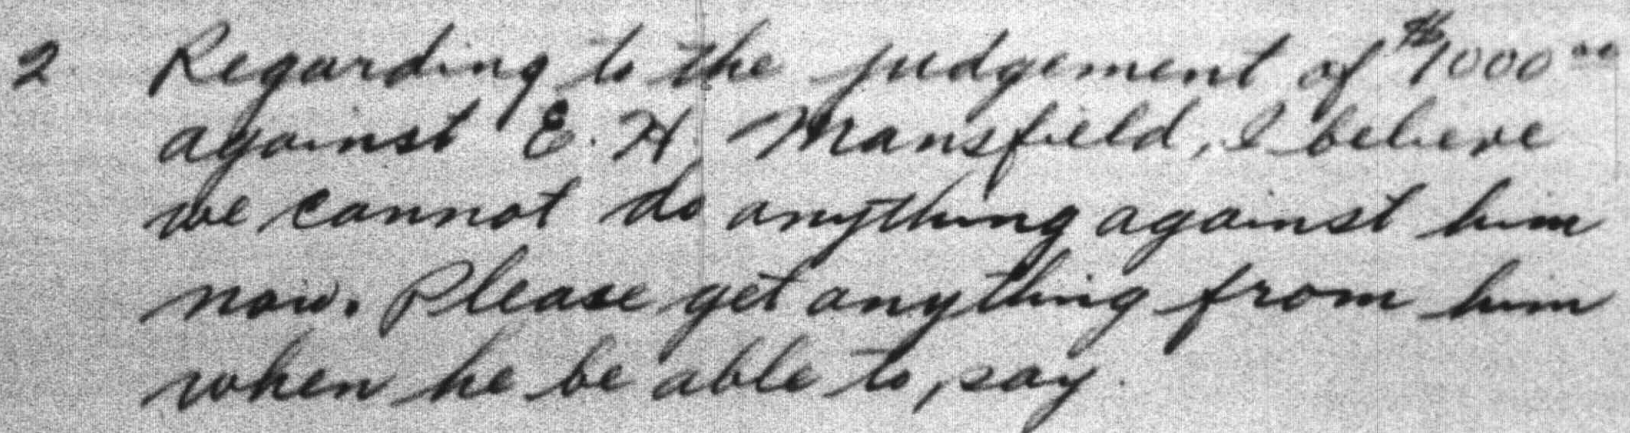 2 Regarding to the judgement of $1000 00
against E. H. Mansfield, I believe
we cannot do anything against him
now. Please get anything from him
when he be able to pay.